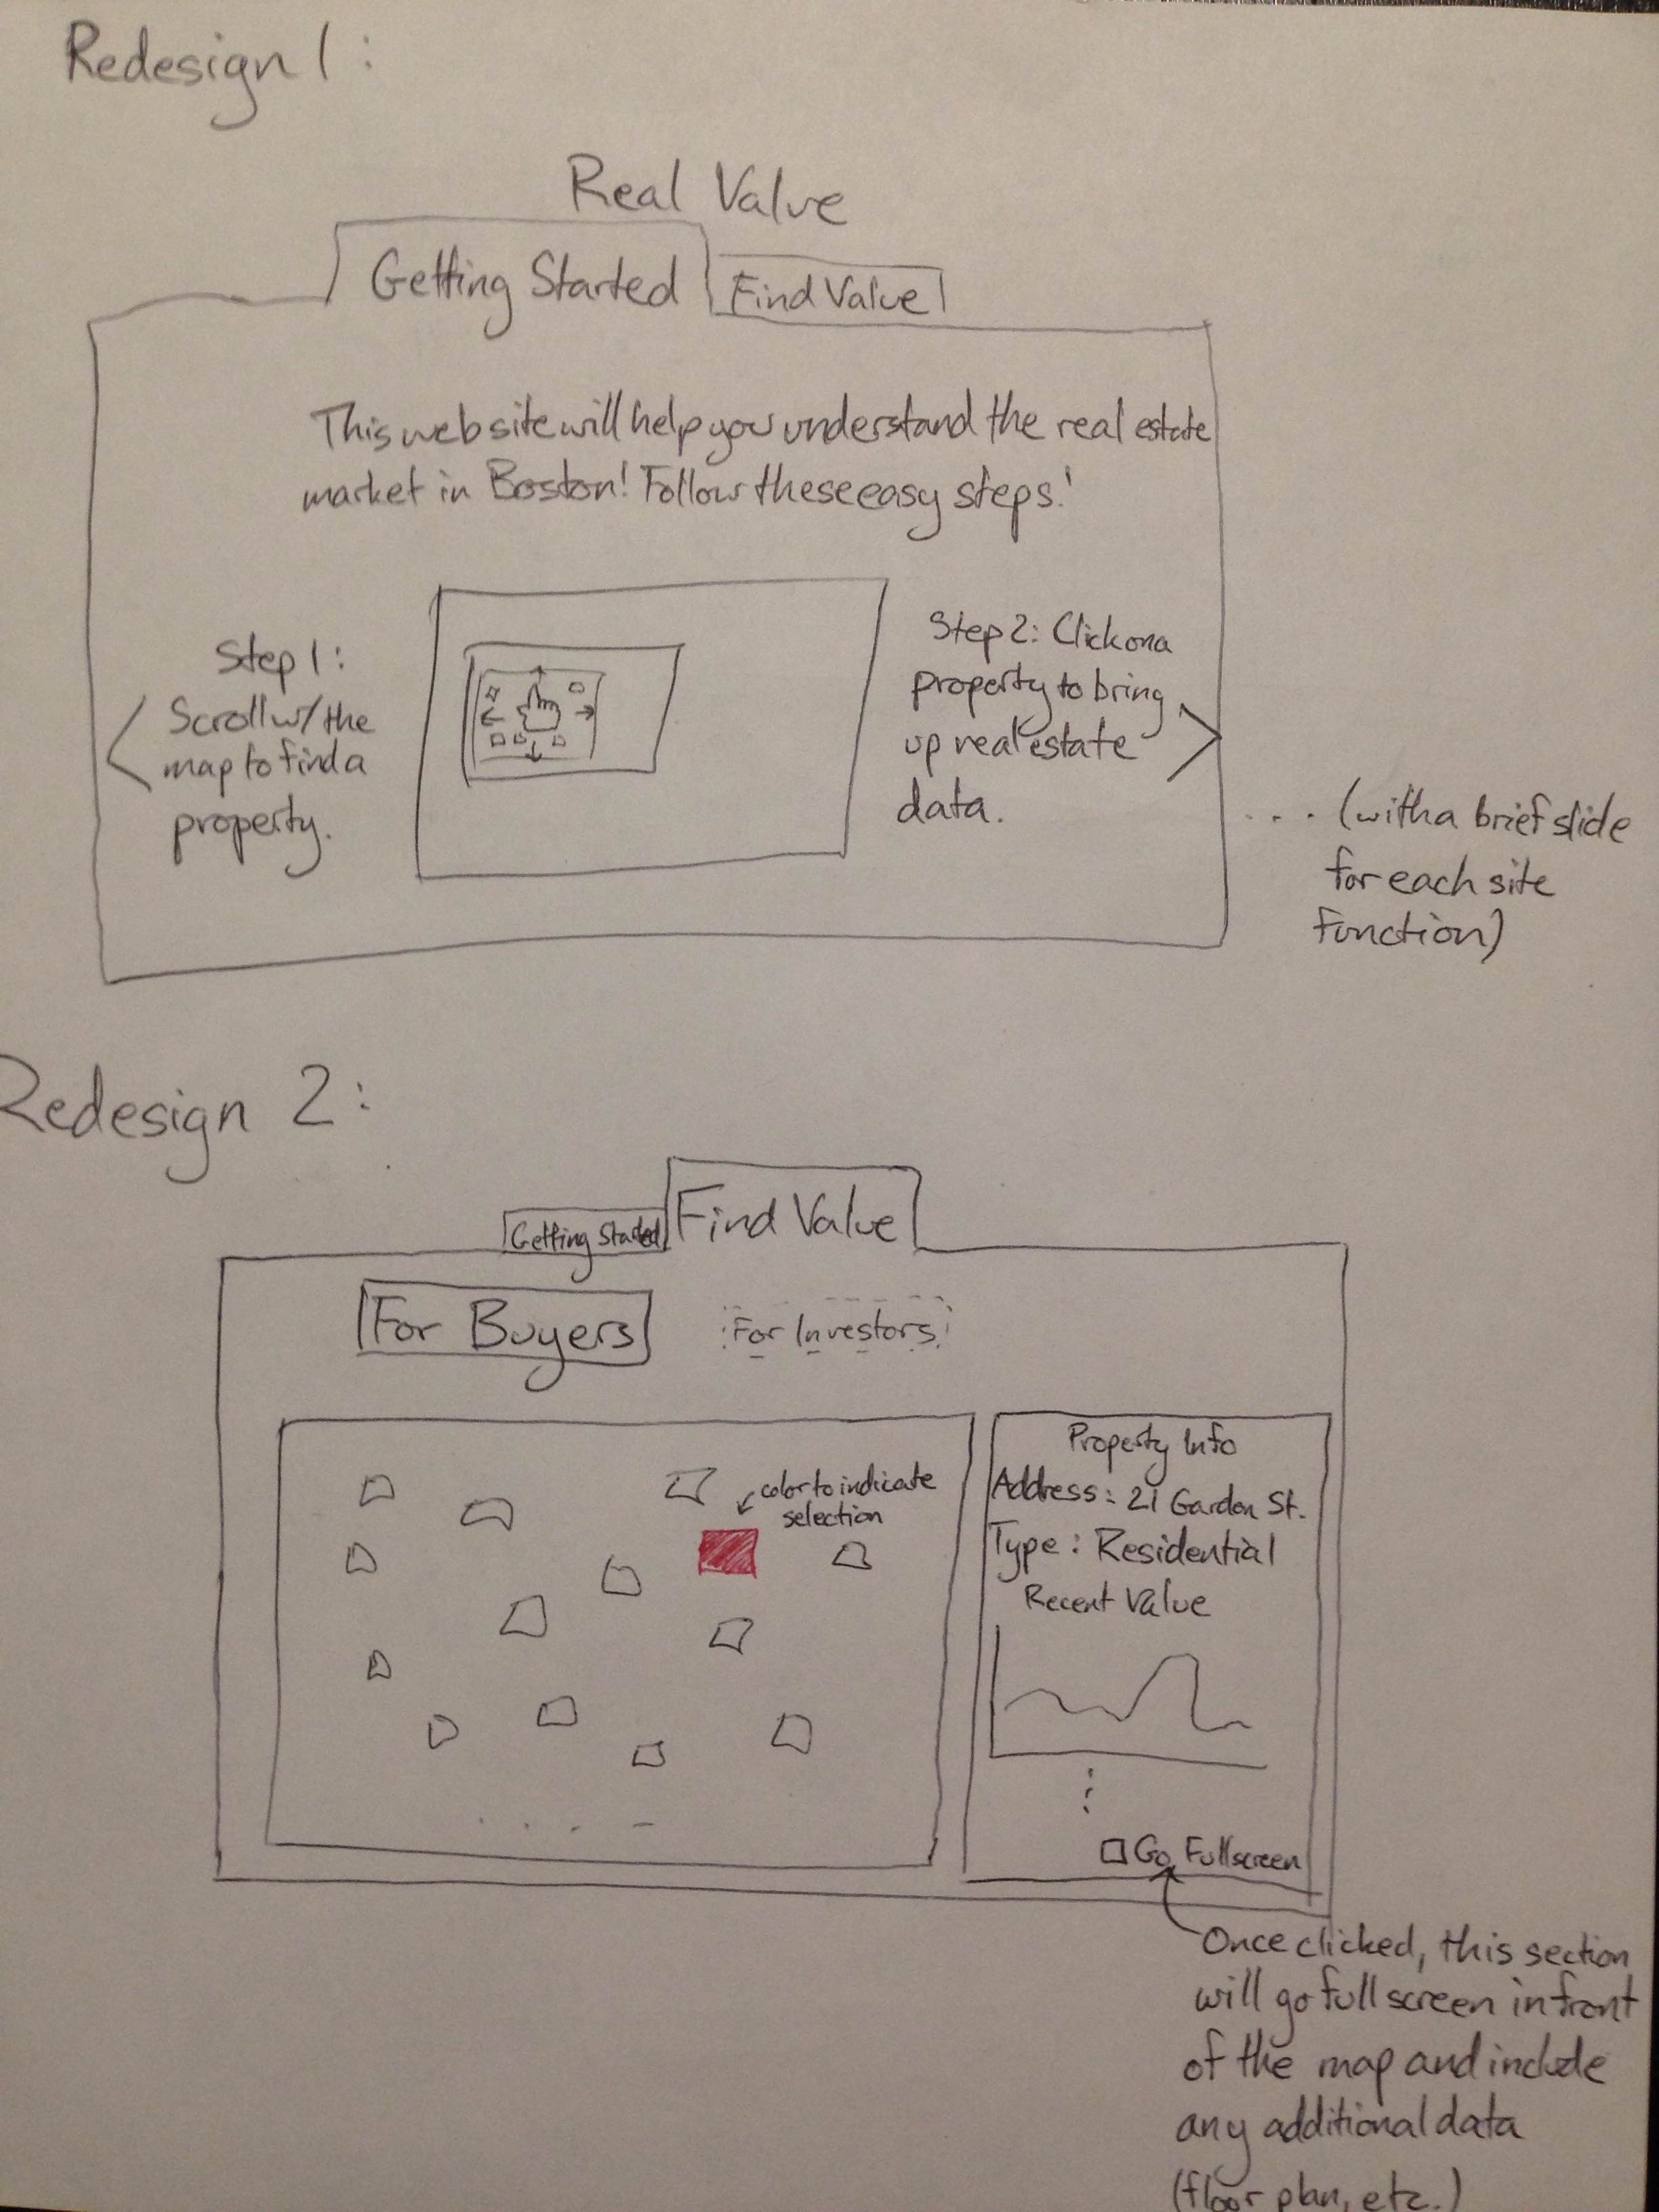 Redesign 1:
Real Value
Getting Started
Find Value
This website will help you understand the real estate
market in Boston! Follow these easy steps!
Step 1:
Scroll w/ the
map to find a
property.
Step 2: Click on a
property to bring
up real estate
data.
... (with a brief slide
for each site
function)
Redesign 2:
Getting Started
Find Value
For Buyers
For Investors
color to indicate
selection
Property Info
Address: 21 Garden St.
Type: Residential
Recent Value
Go Fullscreen
Once clicked, this section
will go full screen in front
of the map and include
any additional data
(floor plan, etc.)